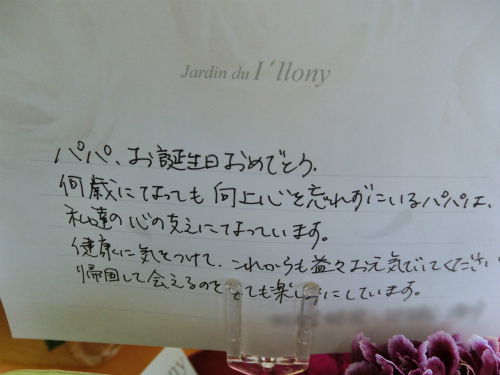 Jardin du I'llony
パパ、お誕生日おめでとう.
何歳になっても向上心を忘れずにいるパパは、
私達の心の支えになっています。
健康に気をつけて、これからも益々お元気でいてください
帰国して会えるのをとても楽しみにしています。
ony